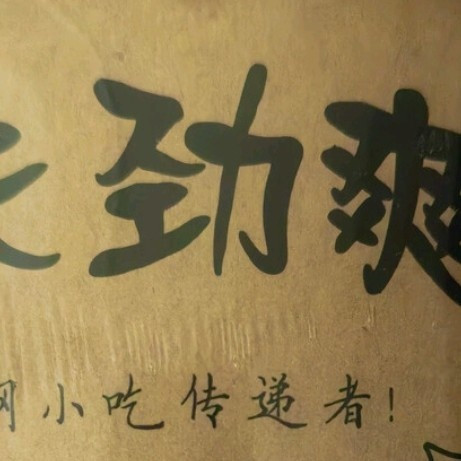 劲爽
网小吃传递者!